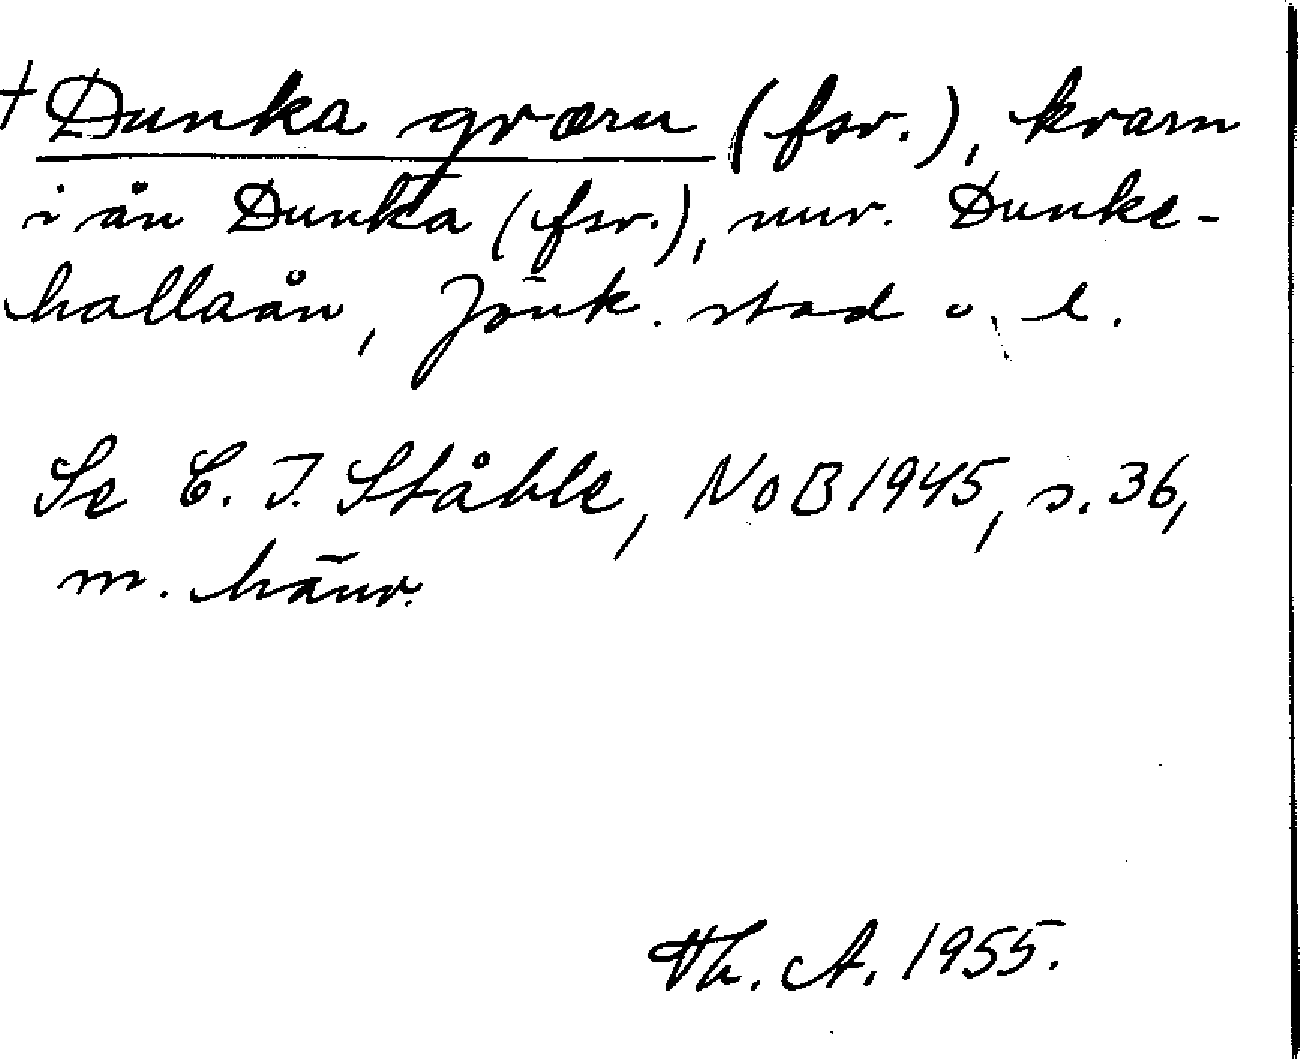 † Dunka qværn (fsv.), kvarn
i ån Dunka (fsv.), nuv. Dunke-
hallaån, Jönk. stad o. l.
Se C. I. Ståhle, NoB 1945, s. 36,
m. hänv.
Th. A. 1955.